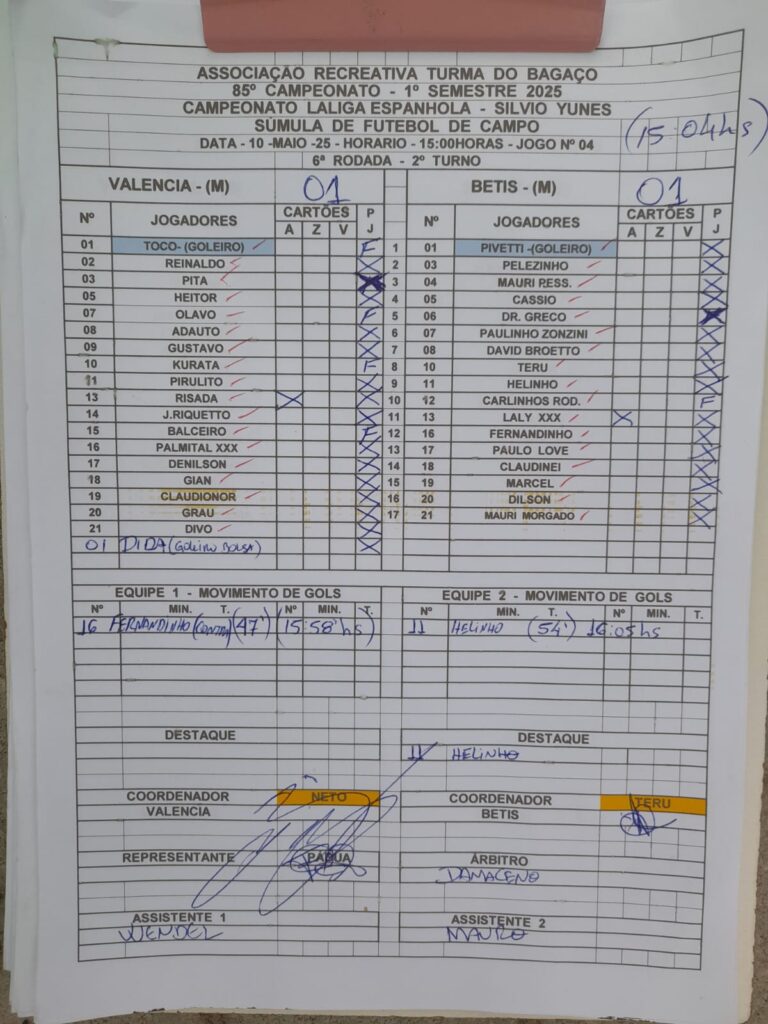 ASSOCIAÇÃO RECREATIVA TURMA DO BAGAÇO
85º CAMPEONATO - 1º SEMESTRE 2025
CAMPEONATO LALIGA ESPANHOLA - SILVIO YUNES
SÚMULA DE FUTEBOL DE CAMPO (15:04hs)
DATA - 10 -MAIO -25 - HORARIO - 15:00HORAS - JOGO Nº 04
6ª RODADA - 2º TURNO
VALENCIA - (M) 01 BETIS - (M) 01
Nº JOGADORES CARTÕES P J Nº JOGADORES CARTÕES P J
A Z V A Z V
01 TOCO- (GOLEIRO) F 1 01 PIVETTI -(GOLEIRO) X
02 REINALDO X 2 03 PELEZINHO X
03 PITA X 3 04 MAURI PESS. X
05 HEITOR X 4 05 CASSIO X
07 OLAVO F 5 06 DR. GRECO X
08 ADAUTO X 6 07 PAULINHO ZONZINI X
09 GUSTAVO X 7 08 DAVID BROETTO X
10 KURATA F 8 10 TERU X
11 PIRULITO X 9 11 HELINHO X
13 RISADA X X 10 12 CARLINHOS ROD. F
14 J.RIQUETTO X 11 13 LALY XXX X X
15 BALCEIRO F 12 16 FERNANDINHO X
16 PALMITAL XXX X 13 17 PAULO LOVE X
17 DENILSON X 14 18 CLAUDINEI X
18 GIAN X 15 19 MARCEL X
19 CLAUDIONOR X 16 20 DILSON X
20 GRAU X 17 21 MAURI MORGADO X
21 DIVO X
01 DIDA (GOLEIRO BOLSA) X
EQUIPE 1 - MOVIMENTO DE GOLS EQUIPE 2 - MOVIMENTO DE GOLS
Nº MIN. T. Nº MIN. T. Nº MIN. T. Nº MIN. T.
16 FERNANDINHO (CONTRA) (47') (15:58'hs) 11 HELINHO (54') 16:05hs
DESTAQUE DESTAQUE
11 HELINHO
COORDENADOR NETO COORDENADOR TERU
VALENCIA BETIS
REPRESENTANTE PADUA ÁRBITRO
DAMACENO
ASSISTENTE 1 ASSISTENTE 2
WENDEL MAURO